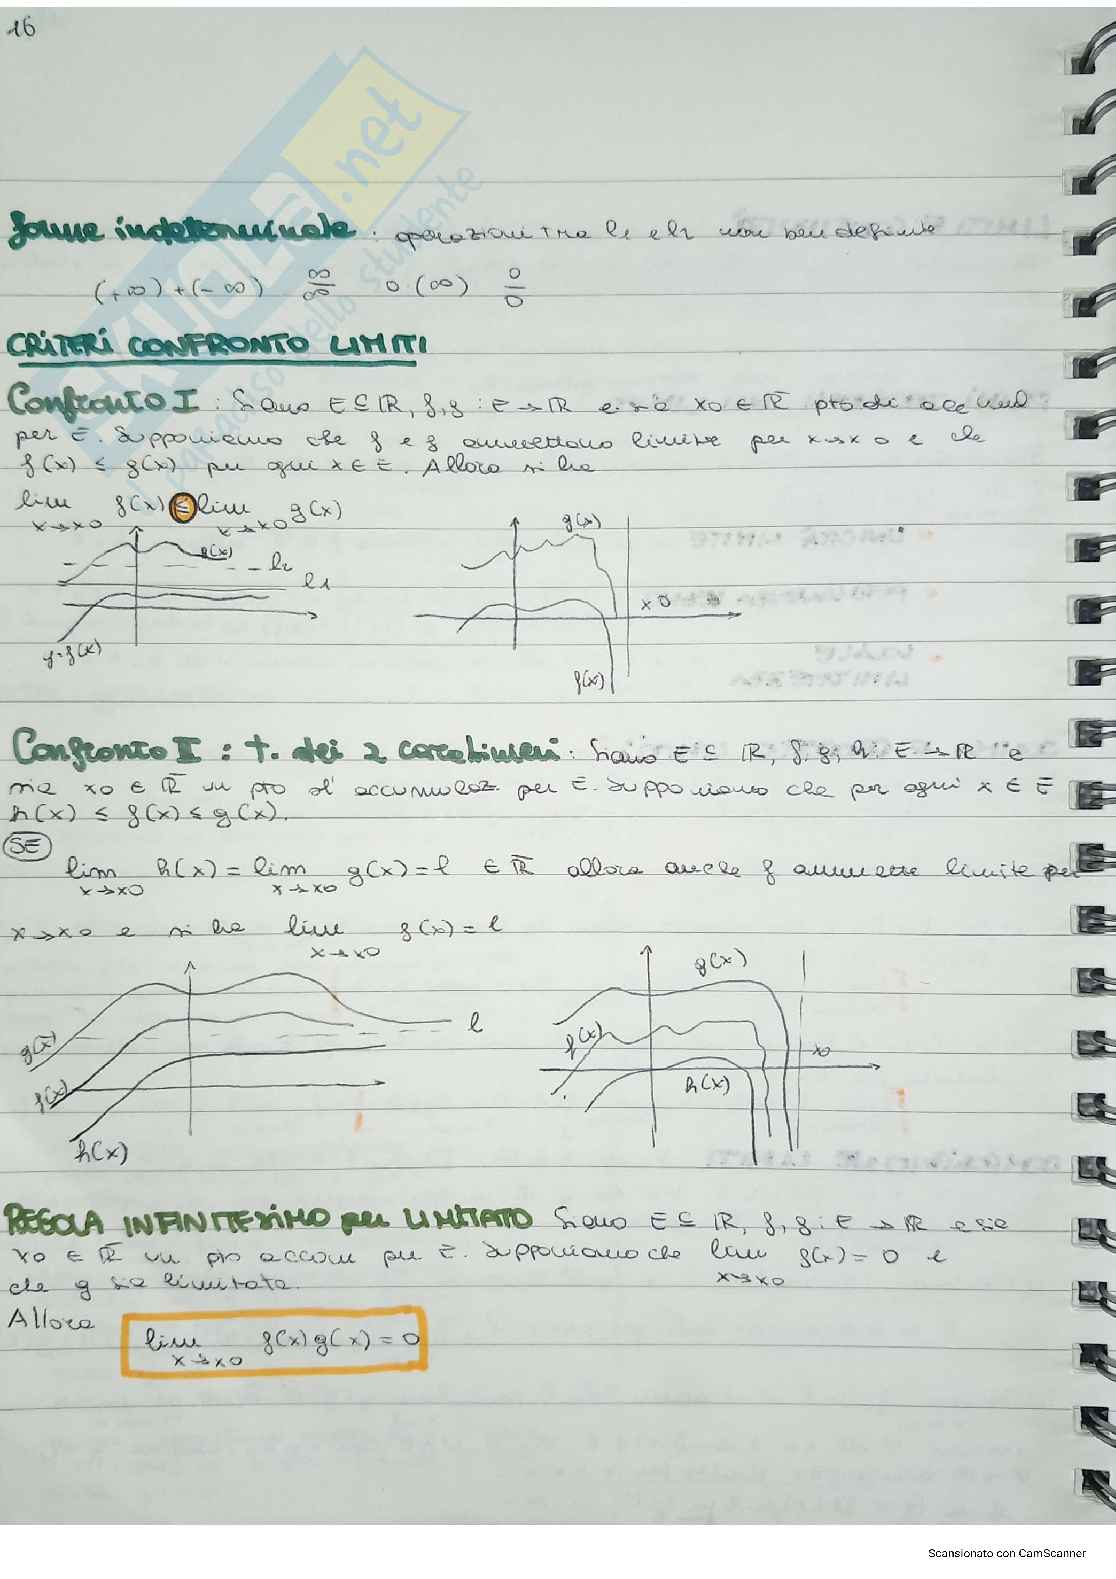 16
forme indeterminate : operazioni tra l1 e l2 non ben definite
(+∞)+(-∞) ∞/∞ 0·(∞) 0/0
CRITERI CONFRONTO LIMITI
Confronto I : Siano E ⊆ ℝ, f, g : E → ℝ e sia x0 ∈ ℝ̅ pto di accumul
per E. Supponiamo che f e g ammettono limite per x→x0 e che
f(x) ≤ g(x) per ogni x ∈ E. Allora si ha
lim x→x0 f(x) ≤ lim x→x0 g(x)
g(x)
l2
l1
y=f(x)
g(x)
x0
f(x)
Confronto II : t. dei 2 carabinieri : Siano E ⊆ ℝ, f, g, h : E → ℝ e
sia x0 ∈ ℝ̅ un pto d'accumulaz. per E. Supponiamo che per ogni x ∈ E
h(x) ≤ f(x) ≤ g(x).
SE
lim x→x0 h(x) = lim x→x0 g(x) = l ∈ ℝ̅ allora anche f ammette limite per
x→x0 e si ha lim x→x0 f(x) = l
g(x)
f(x)
h(x)
l
g(x)
f(x)
h(x)
x0
REGOLA INFINITESIMO per LIMITATO Siano E ⊆ ℝ, f, g : E → ℝ e sia
x0 ∈ ℝ̅ un pto accum per E. Supponiamo che lim x→x0 f(x) = 0 e
che g sia limitata.
Allora
lim x→x0 f(x)g(x) = 0
SKUOLA.net
il paradiso dello studente
Scansionato con CamScanner